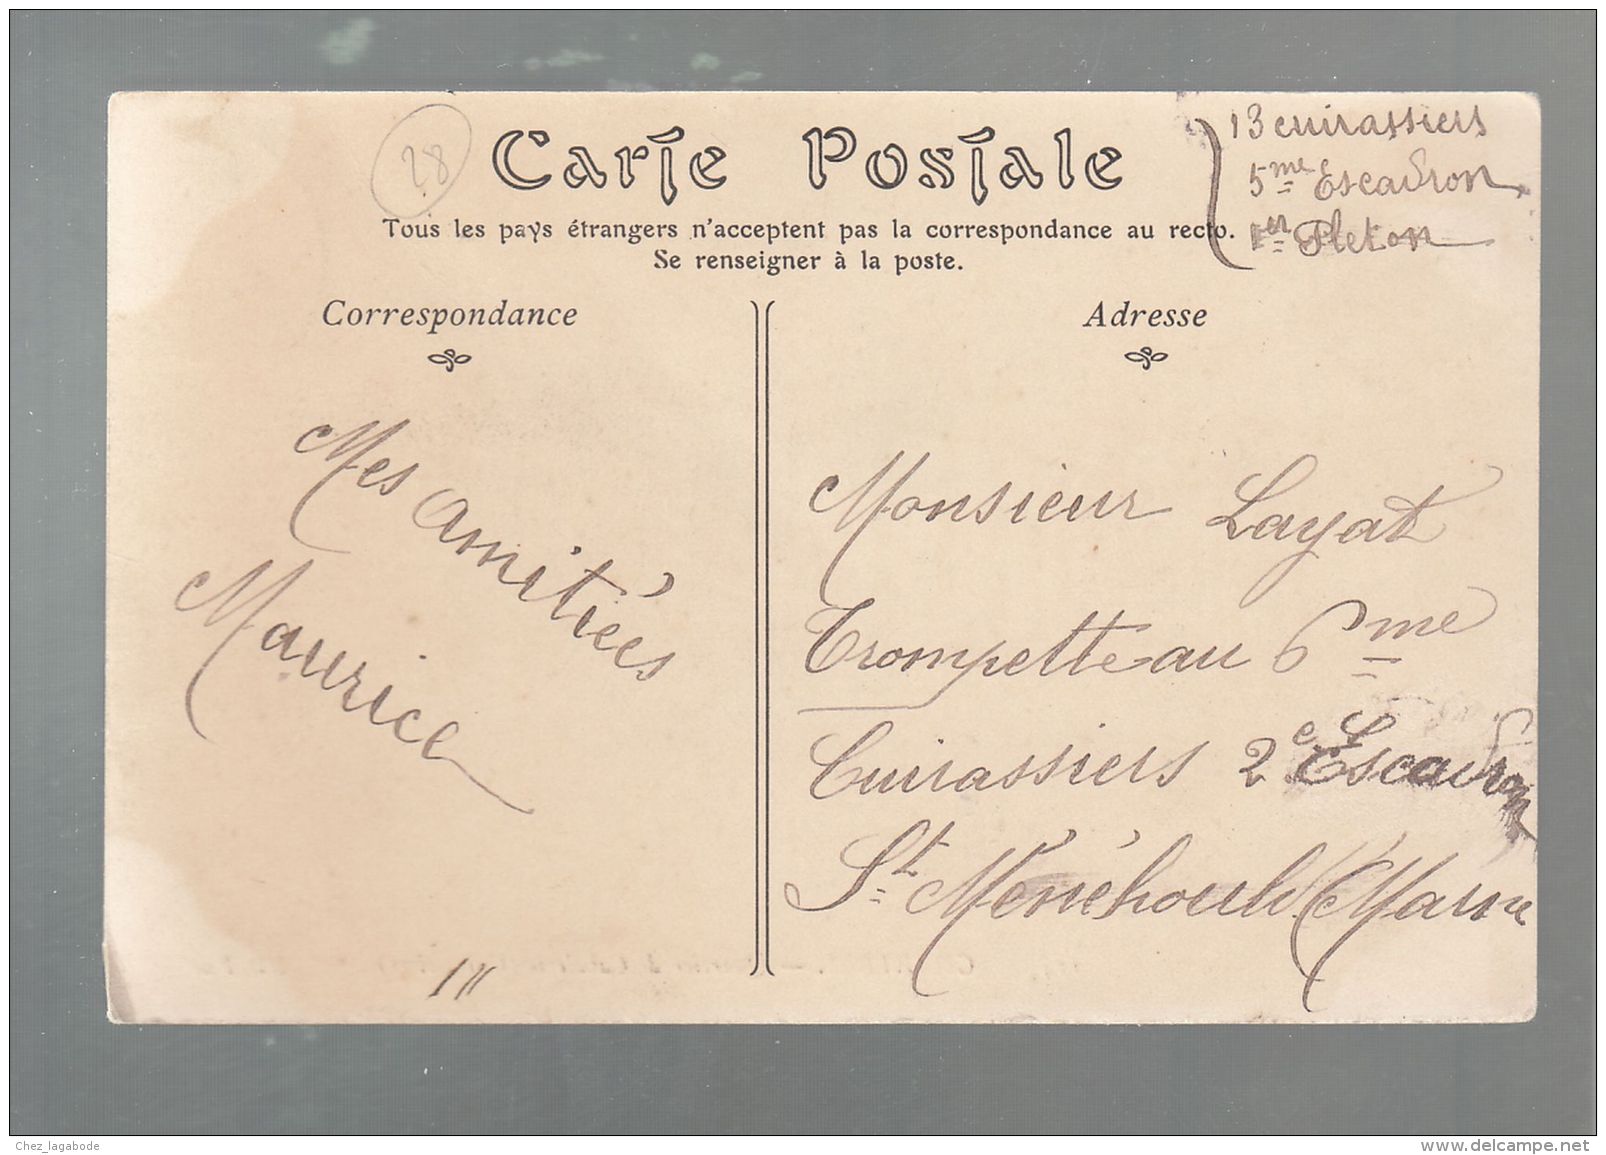 28
Carte Postale
13 cuirassiers
5me Escadron
1er Pleton
Tous les pays étrangers n'acceptent pas la correspondance au recto.
Se renseigner à la poste.
Correspondance
Mes amitiées
Maurice
Adresse
Monsieur Layat
Trompette au 6me
Cuirassiers 2e Escadron
St Menéhould (Marne
Chez_lagabode
www.delcampe.net